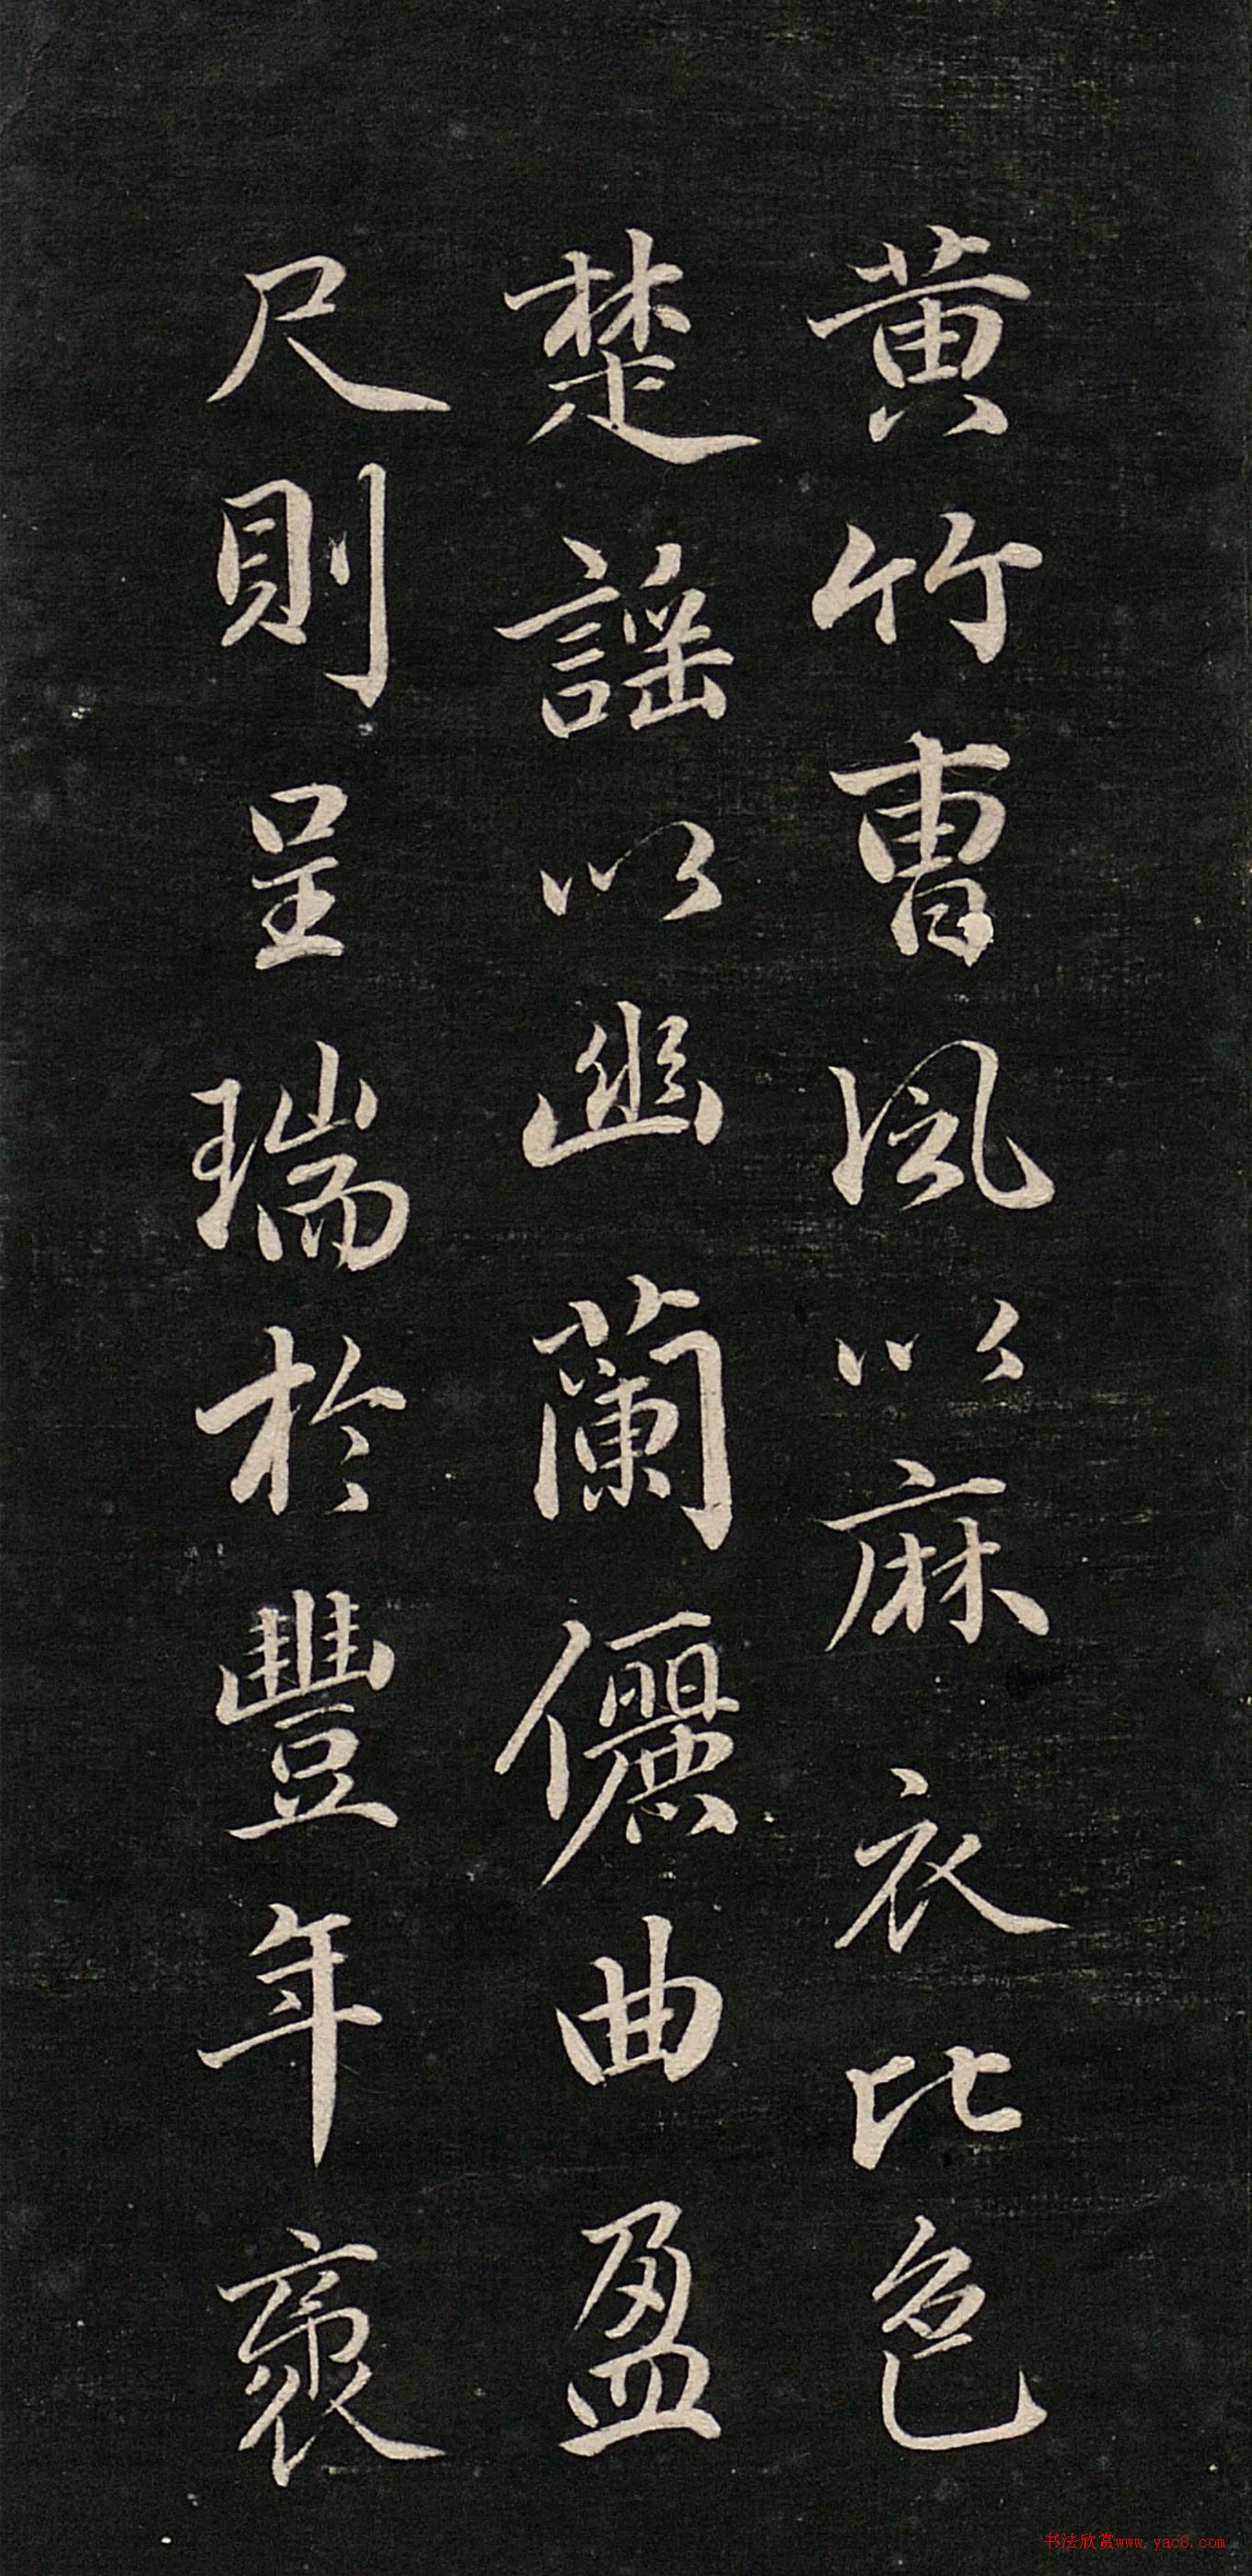 黄竹曹風以麻衣比色
楚謡以幽蘭儷曲盈
尺則呈瑞於豐年袤
书法欣赏www.yac8.com